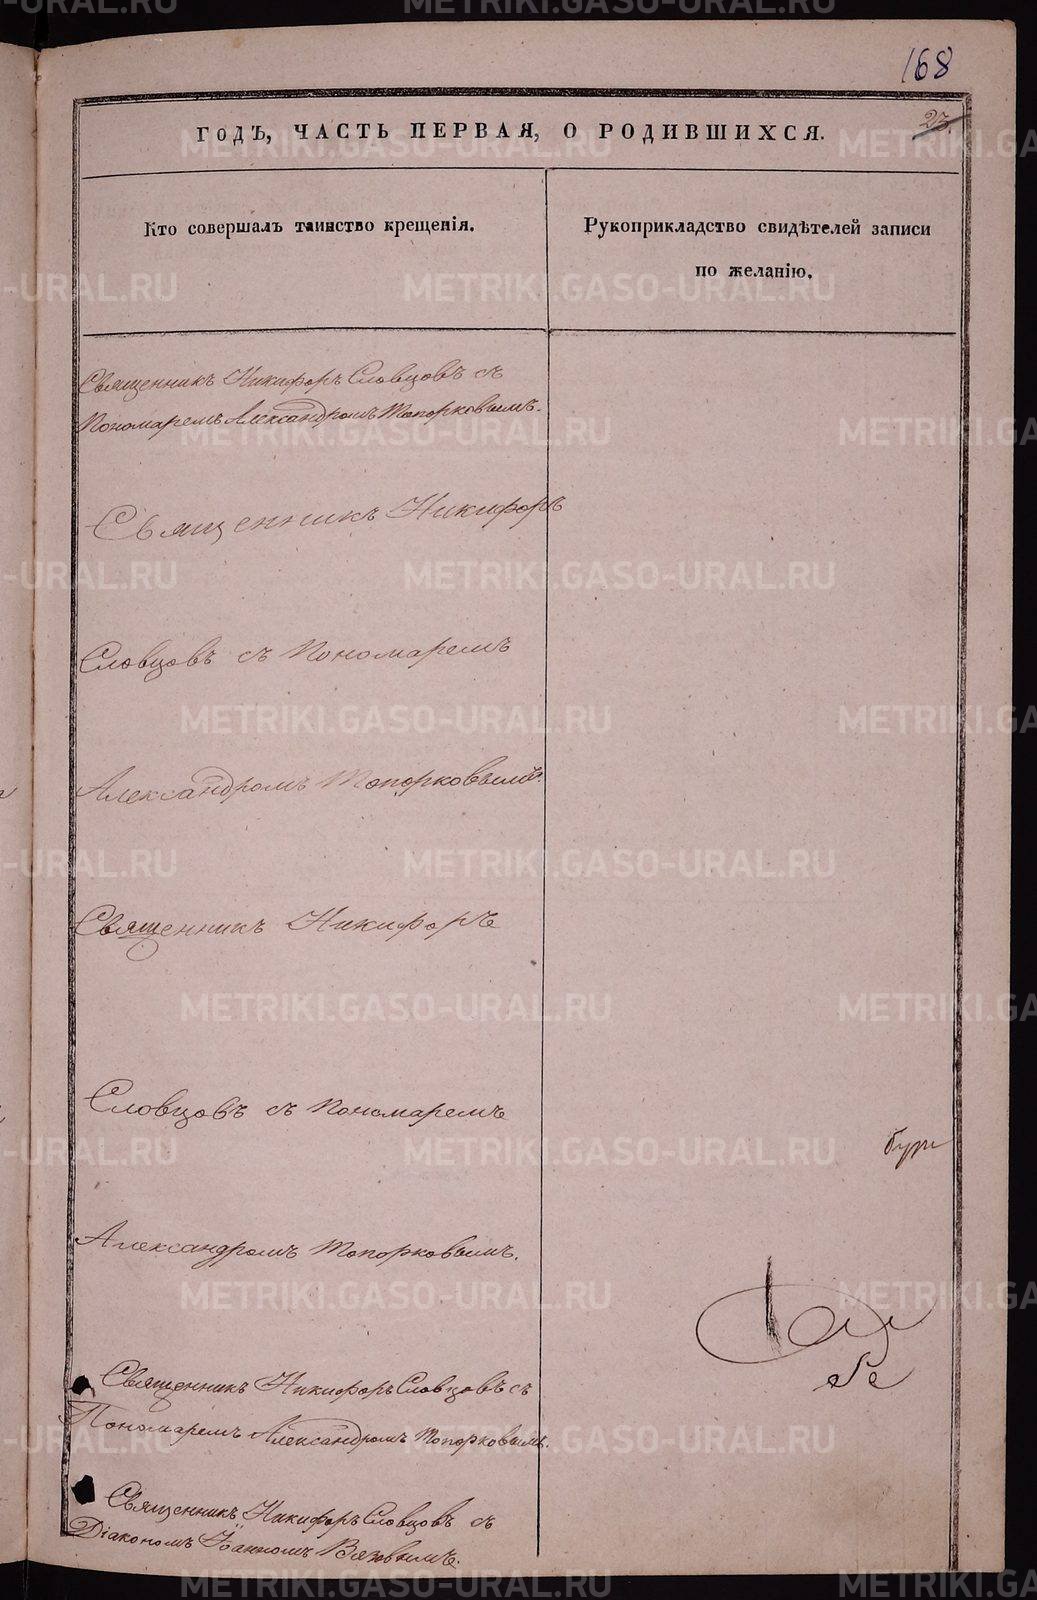 168
23.
ГОДЪ, ЧАСТЬ ПЕРВАЯ, О РОДИВШИХСЯ.
Кто совершалъ таинство крещенія.
Рукоприкладство свидѣтелей записи
по желанію.
Священникъ Никифоръ Словцовъ съ
Пономаремъ Александромъ Топорковымъ.
Священникъ Никифоръ
Словцовъ съ Пономаремъ
Александромъ Топорковымъ.
Священникъ Никифоръ
Словцовъ съ Пономаремъ
Александромъ Топорковымъ.
Священникъ Никифоръ Словцовъ съ
Пономаремъ Александромъ Топорковымъ.
Священникъ Никифоръ Словцовъ съ
Діакономъ Іоанномъ
METRIKI.GASO-URAL.RU